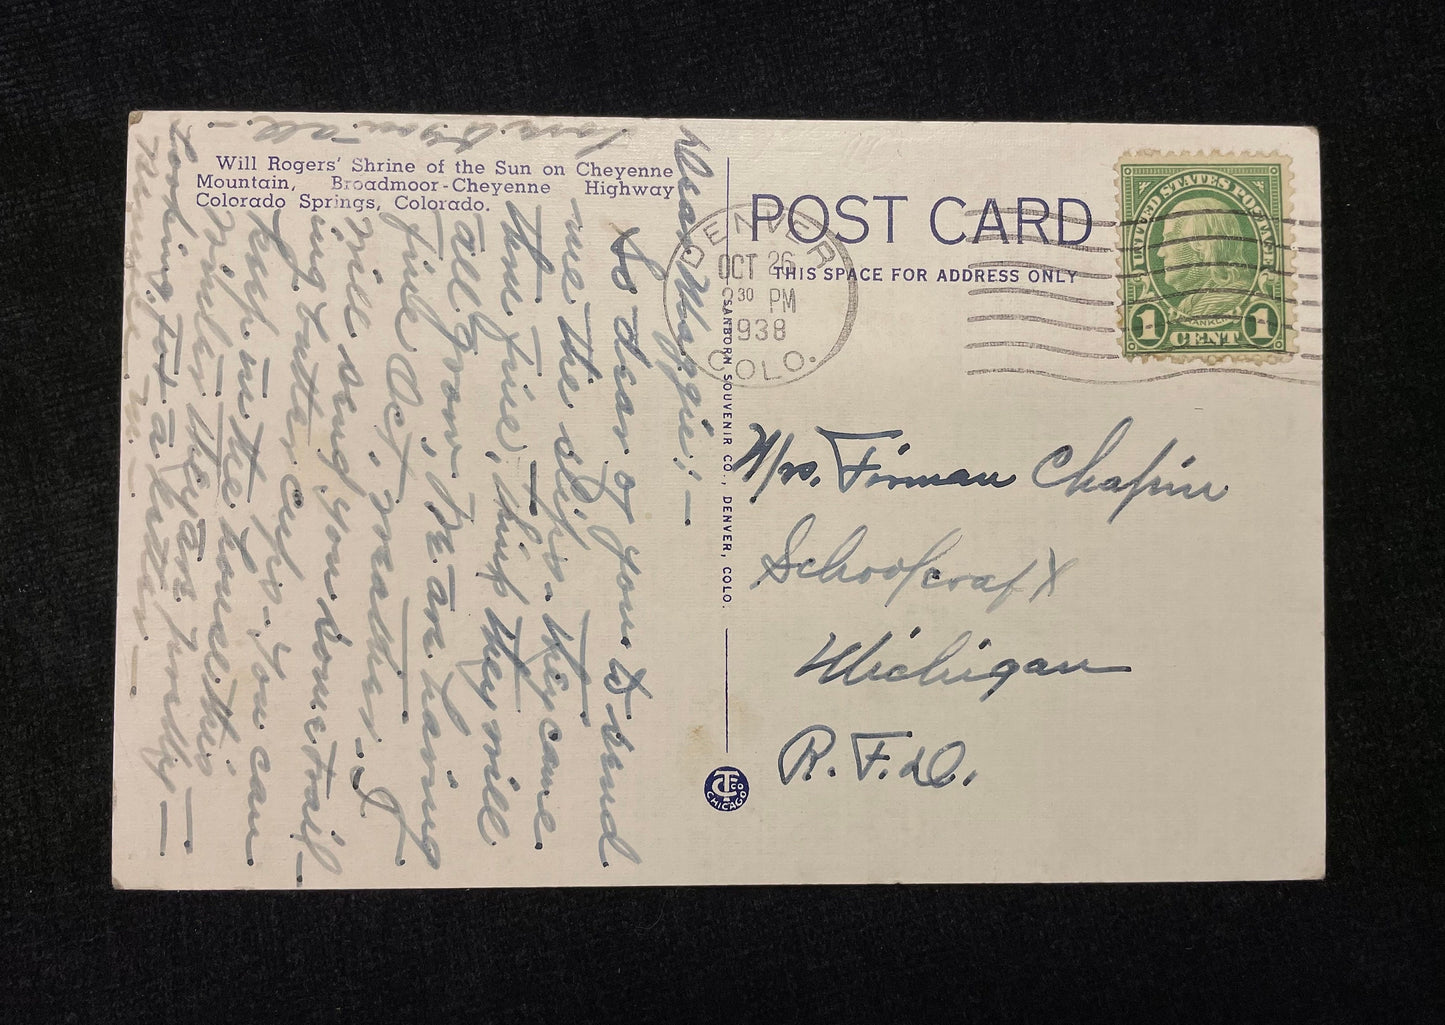 Will Rogers' Shrine of the Sun on Cheyenne
Mountain, Broadmoor-Cheyenne Highway
Colorado Springs, Colorado.
Dear Maggie:-
So dear of you to send
me the slips - they came
thru fine, think they will
all grow, We are having
fine Oct, weather - I
will send you some trail-
ing cups - you can
keep in the house this
Winter
Looking for a letter -
love to you all -
SANBORN SOUVENIR CO., DENVER, COLO.
CT CO
CHICAGO
POST CARD
THIS SPACE FOR ADDRESS ONLY
DENVER
OCT 26
9 30 PM
1938
COLO.
UNITED STATES POSTAGE
FRANKLIN
1 CENT 1
Mrs. Firman Chapin
Schoolcraft
Michigan
R.F.D.